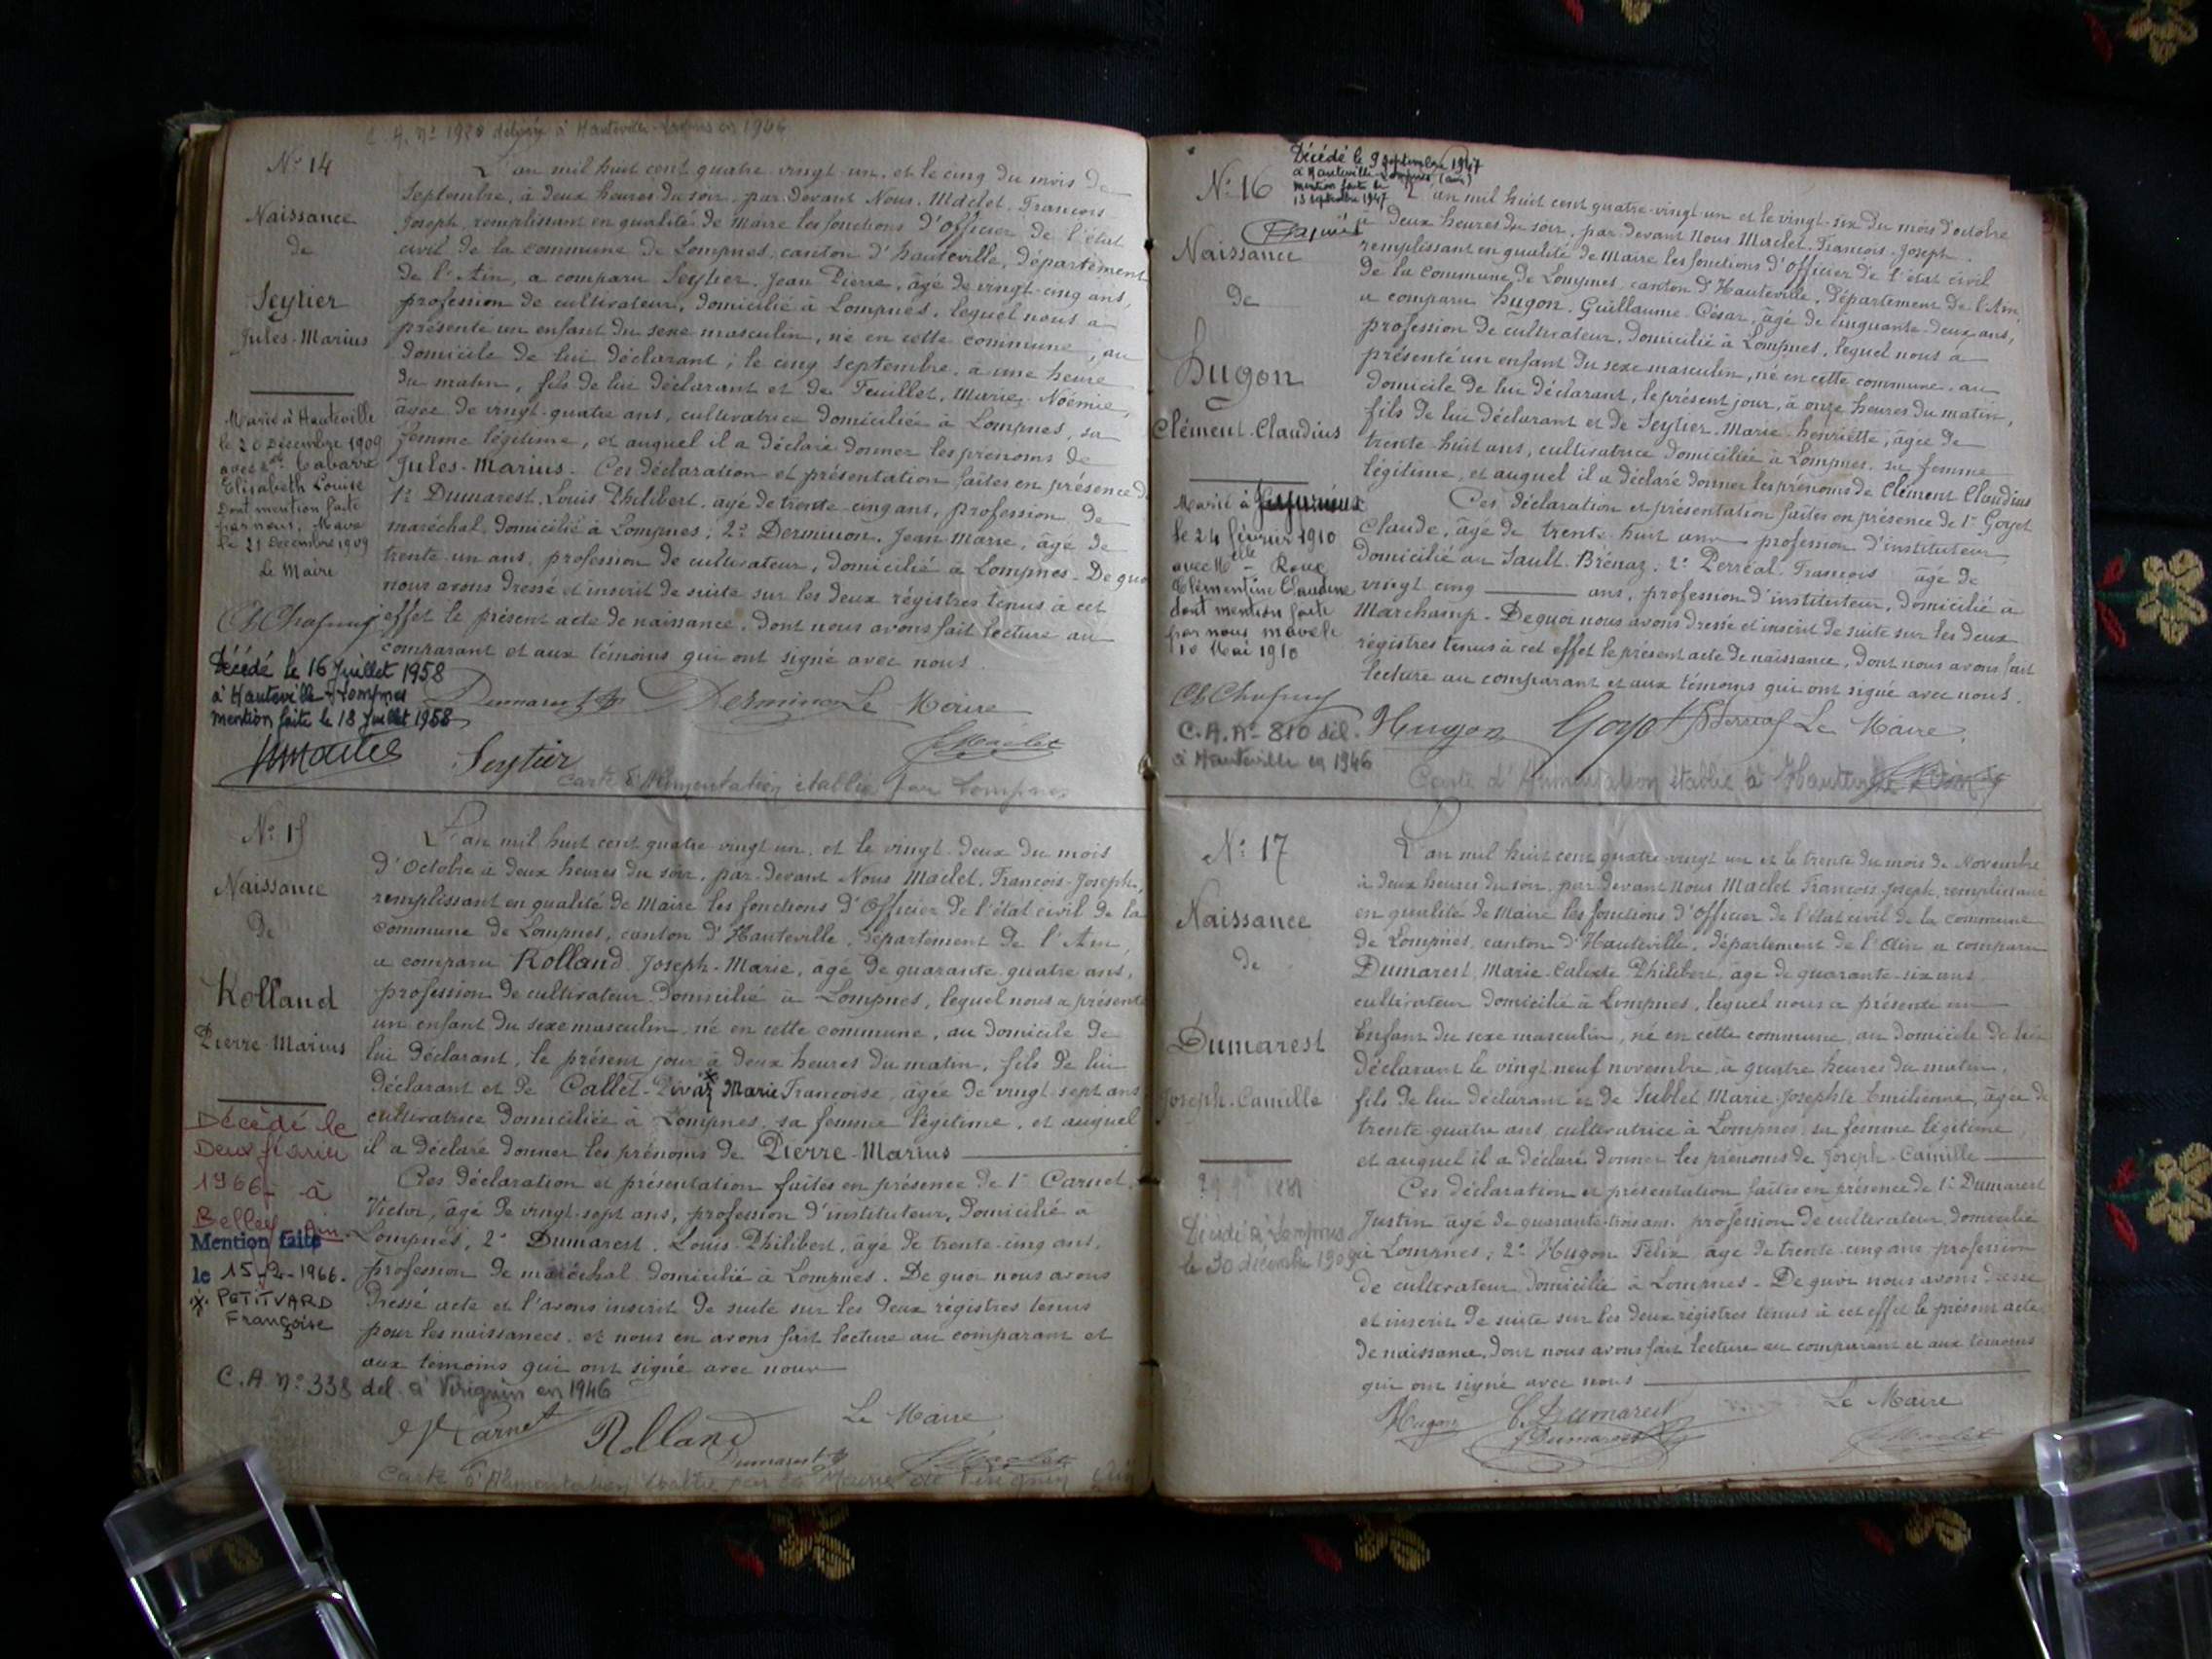 C. A. n° 1920 délivrée à Hauteville-Lompnes en 1946
N° 14
Naissance
de
Seytier
Jules-Marius
Marié à Hauteville
le 20 Décembre 1909
avec Elle Cabarre
Elisabeth Louise
Dont mention faite
par nous, Maire
le 21 Décembre 1909
Le Maire
Décédé le 16 Juillet 1958
à Hauteville-Lompnes
mention faite le 18 Juillet 1958
L'an mil huit cent quatre-vingt-un, et le cinq du mois de
Septembre, à deux heures du soir, par-devant Nous, Maclet, François
Joseph, remplissant en qualité de Maire les fonctions d'Officier de l'état
civil de la commune de Lompnes, canton d'hauteville, département
de l'Ain, a comparu Seytier, Jean Pierre, âgé de vingt-cinq ans,
profession de cultivateur, domicilié à Lompnes, lequel nous a
présenté un enfant du sexe masculin, né en cette commune, au
domicile de lui déclarant, le cinq septembre, à une heure
du matin, fils de lui déclarant et de Feuillet, Marie, Noémie,
âgée de vingt-quatre ans, cultivatrice domiciliée à Lompnes, sa
femme légitime, et auquel il a déclaré donner les prénoms de
Jules-Marius. Ces déclaration et présentation faites en présence de
1° Dumarest, Louis Philibert, âgé de trente-cinq ans, profession de
maréchal, domicilié à Lompnes; 2° Derminon, Jean-Marie, âgé de
trente-un ans, profession de cultivateur, domicilié à Lompnes - De quoi
nous avons dressé et inscrit de suite sur les deux régistres tenus à cet
effet le présent acte de naissance, dont nous avons fait lecture au
comparant et aux témoins qui ont signé avec nous.
Dumarest Derminon Le Maire
Seytier F. Maclet
Carte d'Alimentation établie par Lompnes
N° 15
Naissance
de
Rolland
Pierre-Marius
Décédé le
Deux février
1966 - à
Belley Ain.
Mention faite
le 15-2-1966.
x PETITVARD
Françoise
C.A n° 338 del. à Virignin en 1946
L'an mil huit cent quatre-vingt-un, et le vingt-deux du mois
d'Octobre à deux heures du soir, par-devant Nous Maclet, François-Joseph,
remplissant en qualité de Maire les fonctions d'Officier de l'état civil de la
commune de Lompnes, canton d'Hauteville, département de l'Ain,
a comparu Rolland Joseph-Marie, âgé de quarante-quatre ans,
profession de cultivateur, domicilié à Lompnes, lequel nous a présenté
un enfant du sexe masculin, né en cette commune, au domicile de
lui déclarant, le présent jour à deux heures du matin, fils de lui
déclarant et de Callet-Rivaz x Marie Françoise, âgée de vingt-sept ans
cultivatrice domiciliée à Lompnes, sa femme légitime, et auquel
il a déclaré donner les prénoms de Pierre-Marius
Ces déclaration et présentation faites en présence de 1° Carnet,
Victor, âgé de vingt-sept ans, profession d'instituteur, domicilié à
Lompnes, 2° Dumarest, Louis-Philibert, âgé de trente-cinq ans,
profession de maréchal domicilié à Lompnes. De quoi nous avons
dressé acte et l'avons inscrit de suite sur les deux régistres tenus
pour les naissances, et nous en avons fait lecture au comparant et
aux témoins qui ont signé avec nous
Le Maire
V Carnet Rolland
Dumarest F. Maclet
Carte d'Alimentation établie par la Mairie de Virignin Ain
N° 16
Décédé le 9 septembre 1947
à Hauteville-Lompnes (Ain)
mention faite le
13 septembre 1947
Naissance
de
Hugon
Clément-Claudius
Marié à Jujurieux
le 24 février 1910
avec Melle Roux
Clémentine Claudine
dont mention faite
par nous maire le
10 Mai 1910
C.A. N° 810 dél.
à Hauteville en 1946
L'an mil huit cent quatre-vingt-un et le vingt-six du mois d'octobre
à deux heures du soir, par-devant Nous, Maclet, François-Joseph,
remplissant en qualité de Maire les fonctions d'Officier de l'état civil
de la commune de Lompnes, canton d'Hauteville, département de l'Ain
a comparu hugon, Guillaume-César, âgé de cinquante-deux ans,
profession de cultivateur, domicilié à Lompnes, lequel nous a
présenté un enfant du sexe masculin, né en cette commune, au
domicile de lui déclarant, le présent jour, à onze heures du matin,
fils de lui déclarant et de Seytier, Marie-henriette, âgée de
trente-huit ans, cultivatrice domiciliée à Lompnes, sa femme
légitime, et auquel il a déclaré donner les prénoms de Clément Claudius
Ces déclaration et présentation faites en présence de 1° Goyet
Claude, âgé de trente-huit ans profession d'instituteur
domicilié au Sault-Brénaz, 2° Perréal, François âgé de
vingt cinq ans, profession d'instituteur, domicilié à
Marchamp - De quoi nous avons dressé et inscrit de suite sur les deux
régistres tenus à cet effet le présent acte de naissance, dont nous avons fait
lecture au comparant et aux témoins qui ont signé avec nous.
Hugon Goyet Perréal Le Maire,
Carte d'Alimentation établie à Hauteville
N° 17
Naissance
de
Dumarest
Joseph-Camille
Décédé à Lompnes
le 30 décembre 1909
L'an mil huit cent quatre-vingt un et le trente du mois de Novembre
à deux heures du soir, par-devant Nous Maclet François-Joseph, remplissant
en qualité de Maire les fonctions d'Officier de l'état civil de la commune
de Lompnes, canton d'Hauteville, département de l'Ain a comparu
Dumarest, Marie-Calixte Philibert, âgé de quarante-six ans
cultivateur domicilié à Lompnes, lequel nous a présenté un
Enfant du sexe masculin, né en cette commune, au domicile de lui
déclarant le vingt-neuf novembre à quatre heures du matin,
fils de lui déclarant et de Sublet Marie Josephte Emilienne, âgée de
trente-quatre ans cultivatrice à Lompnes, sa femme légitime
et auquel il a déclaré donner les prénoms de Joseph-Camille
Ces déclaration et présentation faites en présence de 1° Dumarest
Justin âgé de quarante-trois ans, profession de cultivateur, domicilié
à Lompnes; 2° Hugon Félix, âgé de trente-cinq ans profession
de cultivateur domicilié à Lompnes - De quoi nous avons dressé
et inscrit de suite sur les deux régistres tenus à cet effet le présent acte
de naissance, dont nous avons fait lecture au comparant et aux témoins
qui ont signé avec nous
Le Maire
Hugon C. Dumarest
J Dumarest F. Maclet